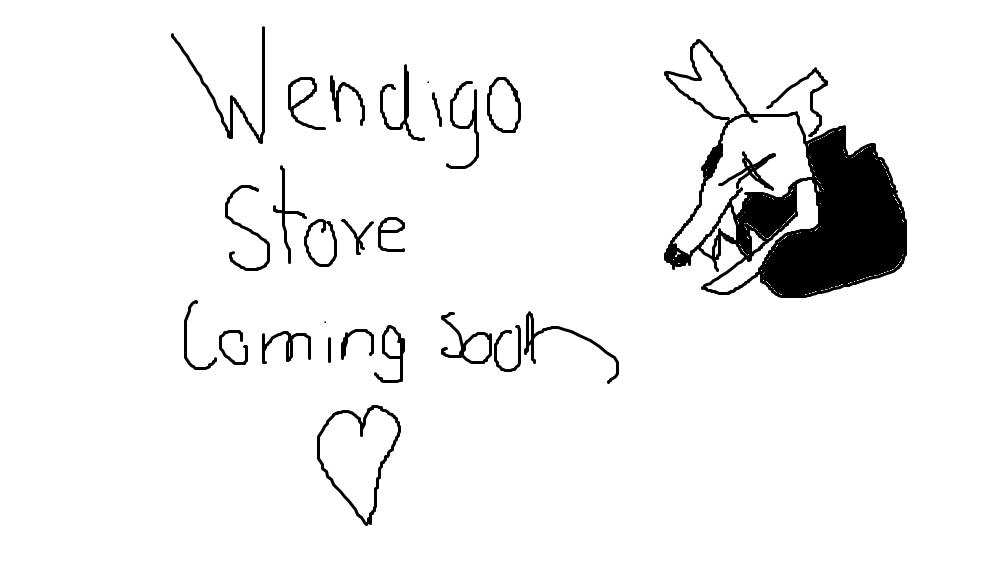 Wendigo
Store
Coming Soon